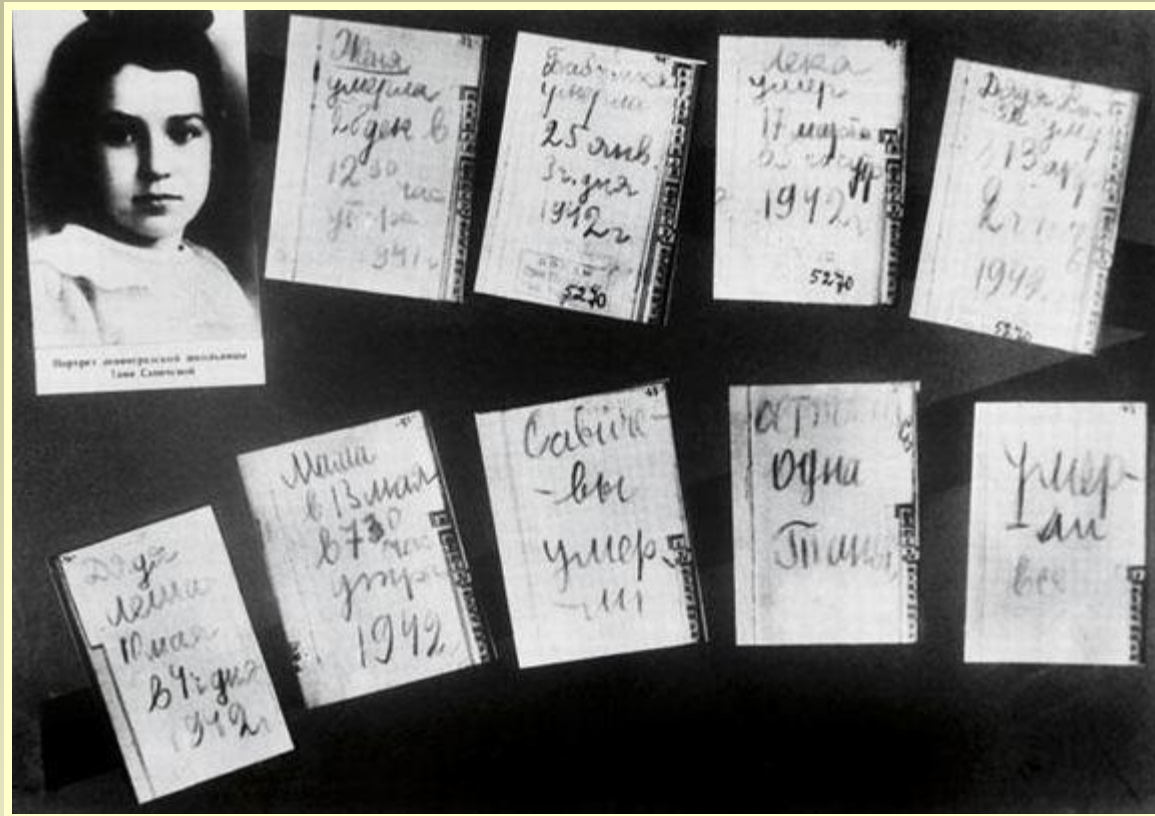 Портрет ленинградской школьницы
Тани Савичевой
Женя
умерла
28 дек в
12 30
час
утра
1941 г
Бабушка
умерла
25 янв.
3 ч. дня
1942 г
5270
Лека
умер
17 марта
1942 г
5270
Дядя Ва-
ся ум
в 13 апр
2 ч ночь
1942
5270
Дядя
Леша
10 мая
в 4 ч дня
1942 г
Мама
в 13 мая
в 7 30
час
утра
1942
Савиче-
-вы
умер
-ли
одна
Таня
умер-
-ли
все